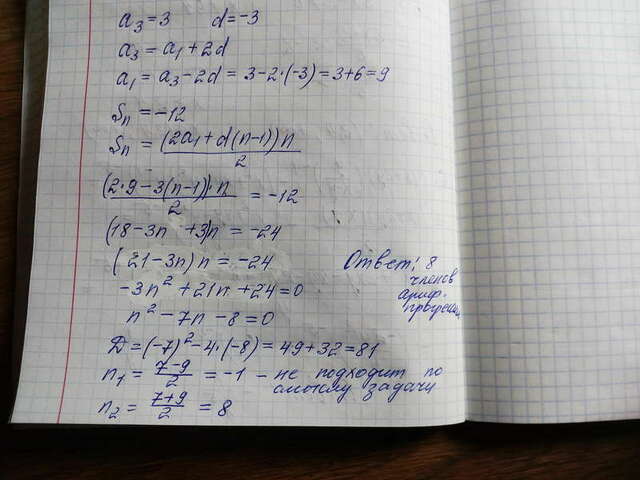 a₃=3 d=-3
a₃=a₁+2d
a₁=a₃-2d=3-2·(-3)=3+6=9
Sₙ=-12
Sₙ=(2a₁+d(n-1))n/2
(2·9-3(n-1))·n/2=-12
(18-3n+3)n=-24
(21-3n)n=-24
-3n²+21n+24=0
n²-7n-8=0
Д=(-7)²-4·(-8)=49+32=81
n₁=(7-9)/2=-1 - не подходит по
смыслу задачи
n₂=(7+9)/2=8
Ответ: 8
членов
ариф.